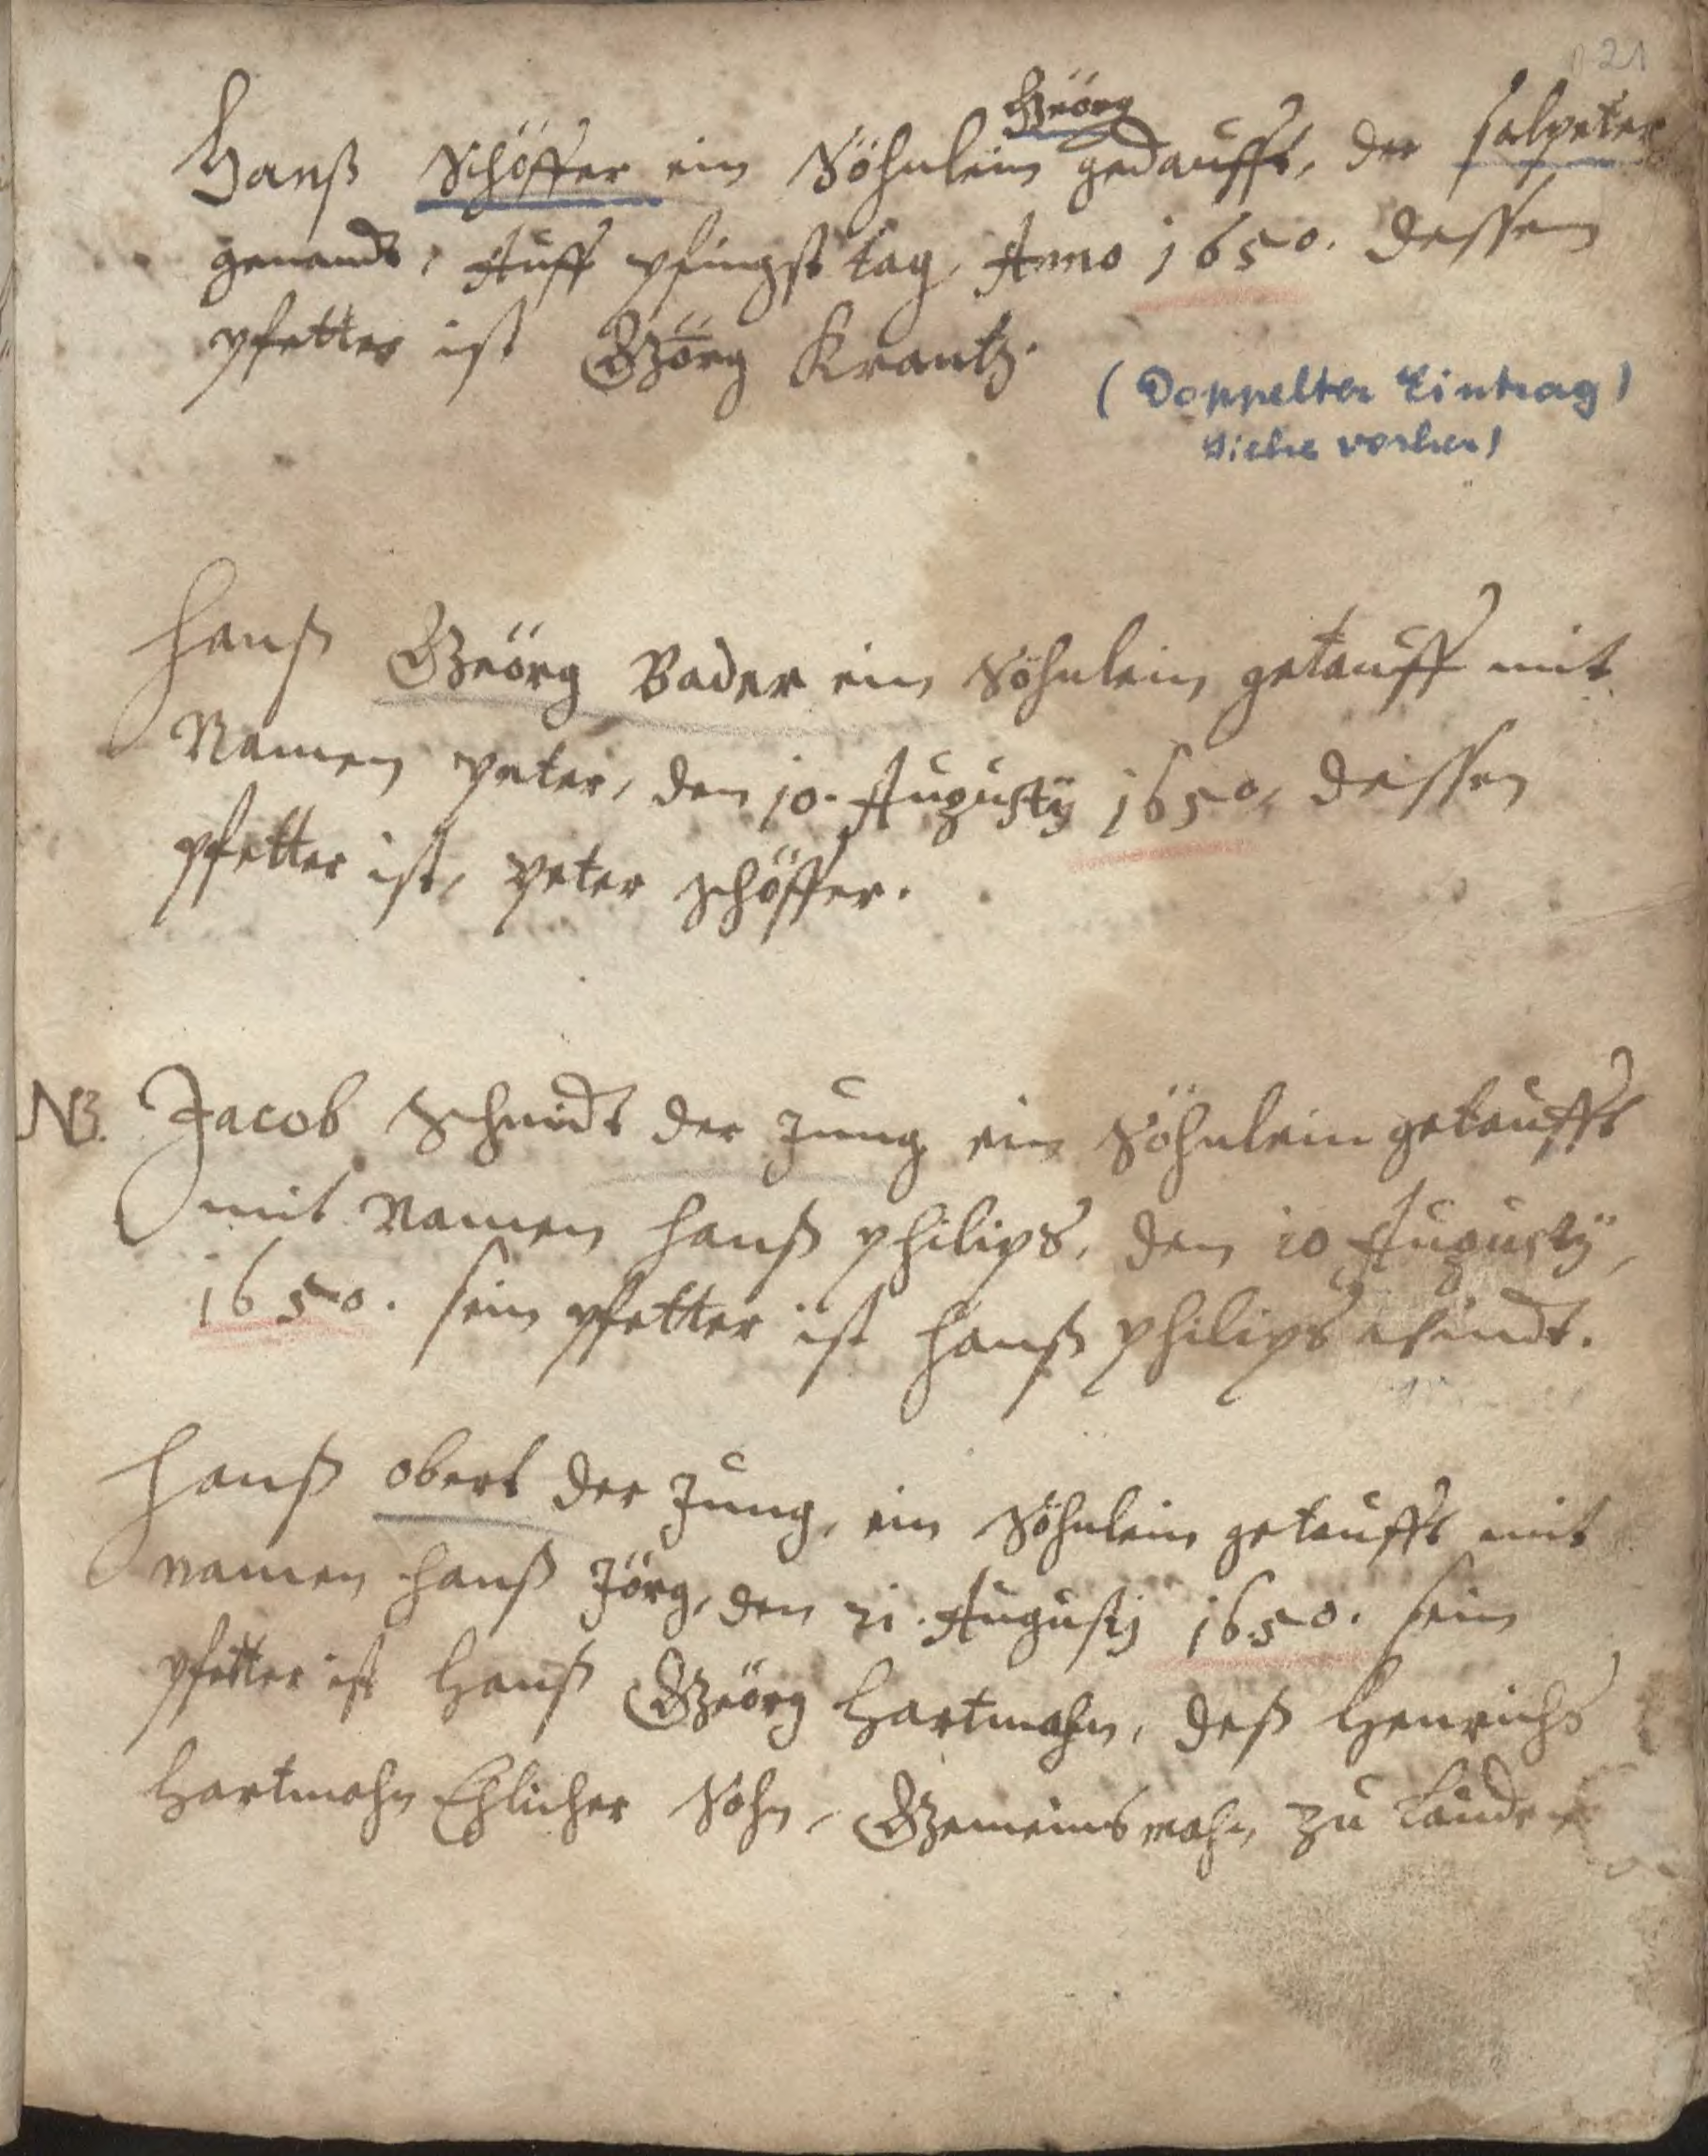 21
Geörg
Hanß Schöffer ein Söhnlein gedaufft, der salpeter
genandt, Auff pfingst tag, Anno 1650. dessen
pfetter ist Geörg Krantz.
(Doppelter Eintrag)
siehe vorher)
Hanß Geörg Bader ein Söhnlein getauff mit
Namen peter, den 10. Augusty 1650, dessen
pfetter ist, peter schöffer.
NB. Jacob Schmidt der Jung ein Söhnlein getaufft
mit Namen Hanß philips, den 10 Augusty,
1650. sein pfetter ist Hanß philips
Hanß obert der Jung, ein Söhnlein getaufft mit
namen Hanß Jörg, den 21. Augustj 1650. sein
pfetter ist Hanß Geörg Hartmahn, deß Henrichs
Hartmahn Ehlicher Sohn, Gemeinsmahn zu